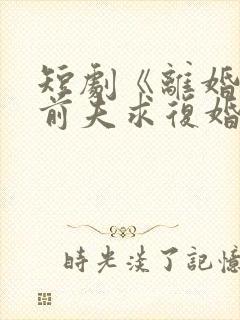 短劇《離婚
前夫求復婚
時光淡了記憶